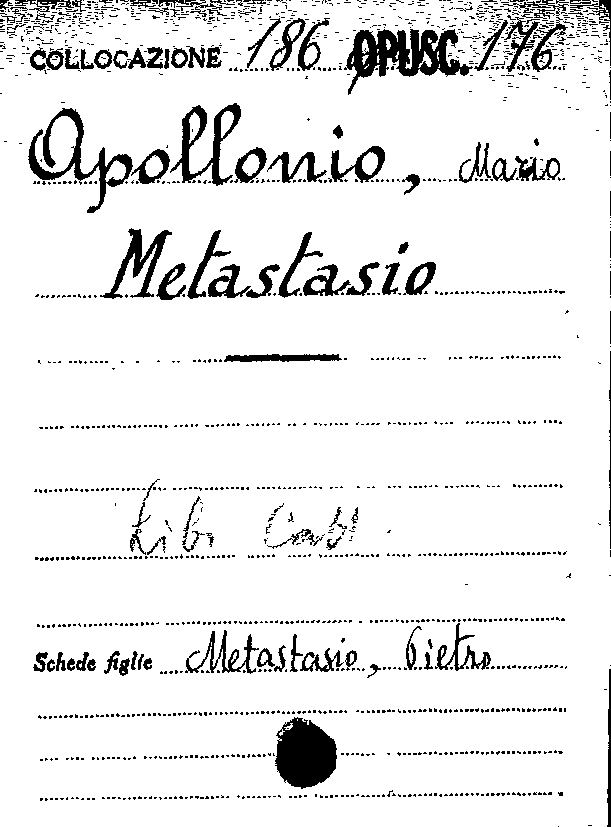 COLLOCAZIONE 186 OPUSC. 176
Apollonio, Mario
Metastasio
Schede figlie Metastasio, Pietro